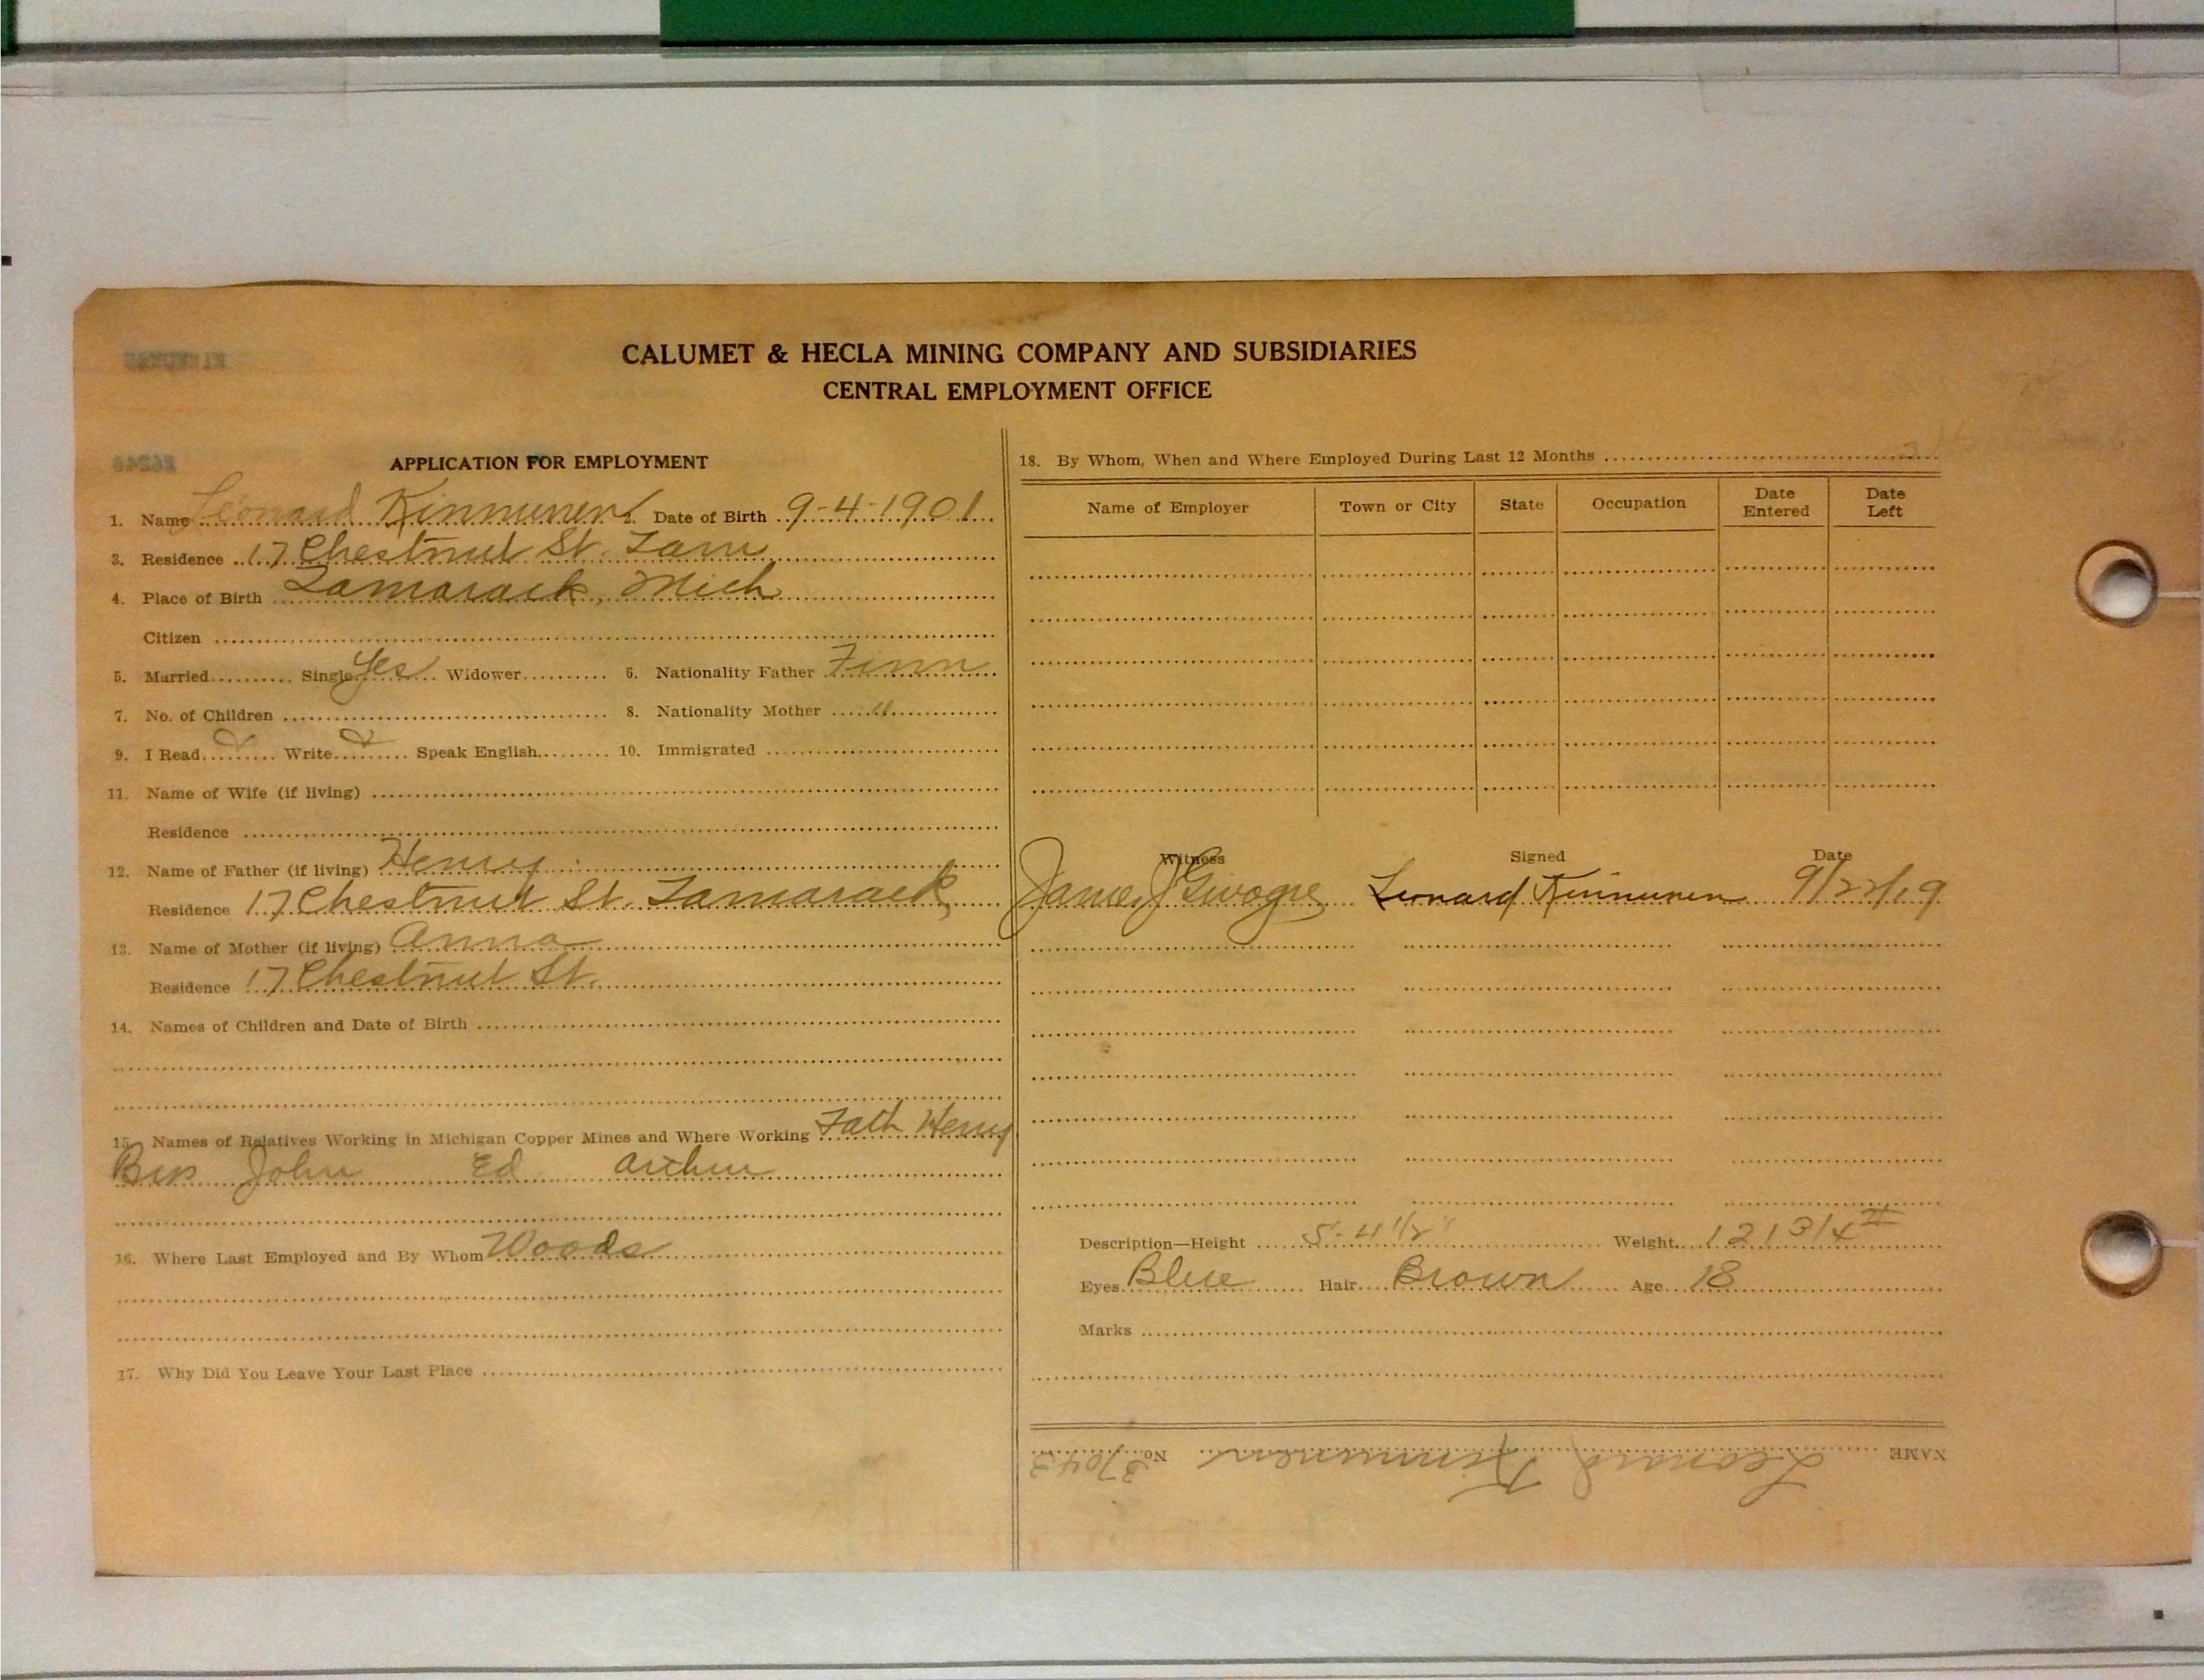 CALUMET & HECLA MINING COMPANY AND SUBSIDIARIES
CENTRAL EMPLOYMENT OFFICE
APPLICATION FOR EMPLOYMENT
1. Name Leonard Kinnunen 2. Date of Birth 9-4-1901
3. Residence 17 Chestnut St. Tam
4. Place of Birth Tamarack, Mich
Citizen
5. Married Single Yes Widower 6. Nationality Father Finn
7. No. of Children 8. Nationality Mother "
9. I Read Write Speak English 10. Immigrated
11. Name of Wife (if living)
Residence
12. Name of Father (if living) Henry
Residence 17 Chestnut St. Tamarack
13. Name of Mother (if living) Anna
Residence 17 Chestnut St.
14. Names of Children and Date of Birth
15. Names of Relatives Working in Michigan Copper Mines and Where Working Fath Henry
Bros John Ed Arthur
16. Where Last Employed and By Whom Woods
17. Why Did You Leave Your Last Place
18. By Whom, When and Where Employed During Last 12 Months
Name of Employer Town or City State Occupation Date Entered Date Left
Witness Signed Date
James J Leonard Kinnunen 9/22/19
Description—Height 5'-4 1/2" Weight 121 3/4 #
Eyes Blue Hair Brown Age 18
Marks
NAME Leonard Kinnunen No. 37043